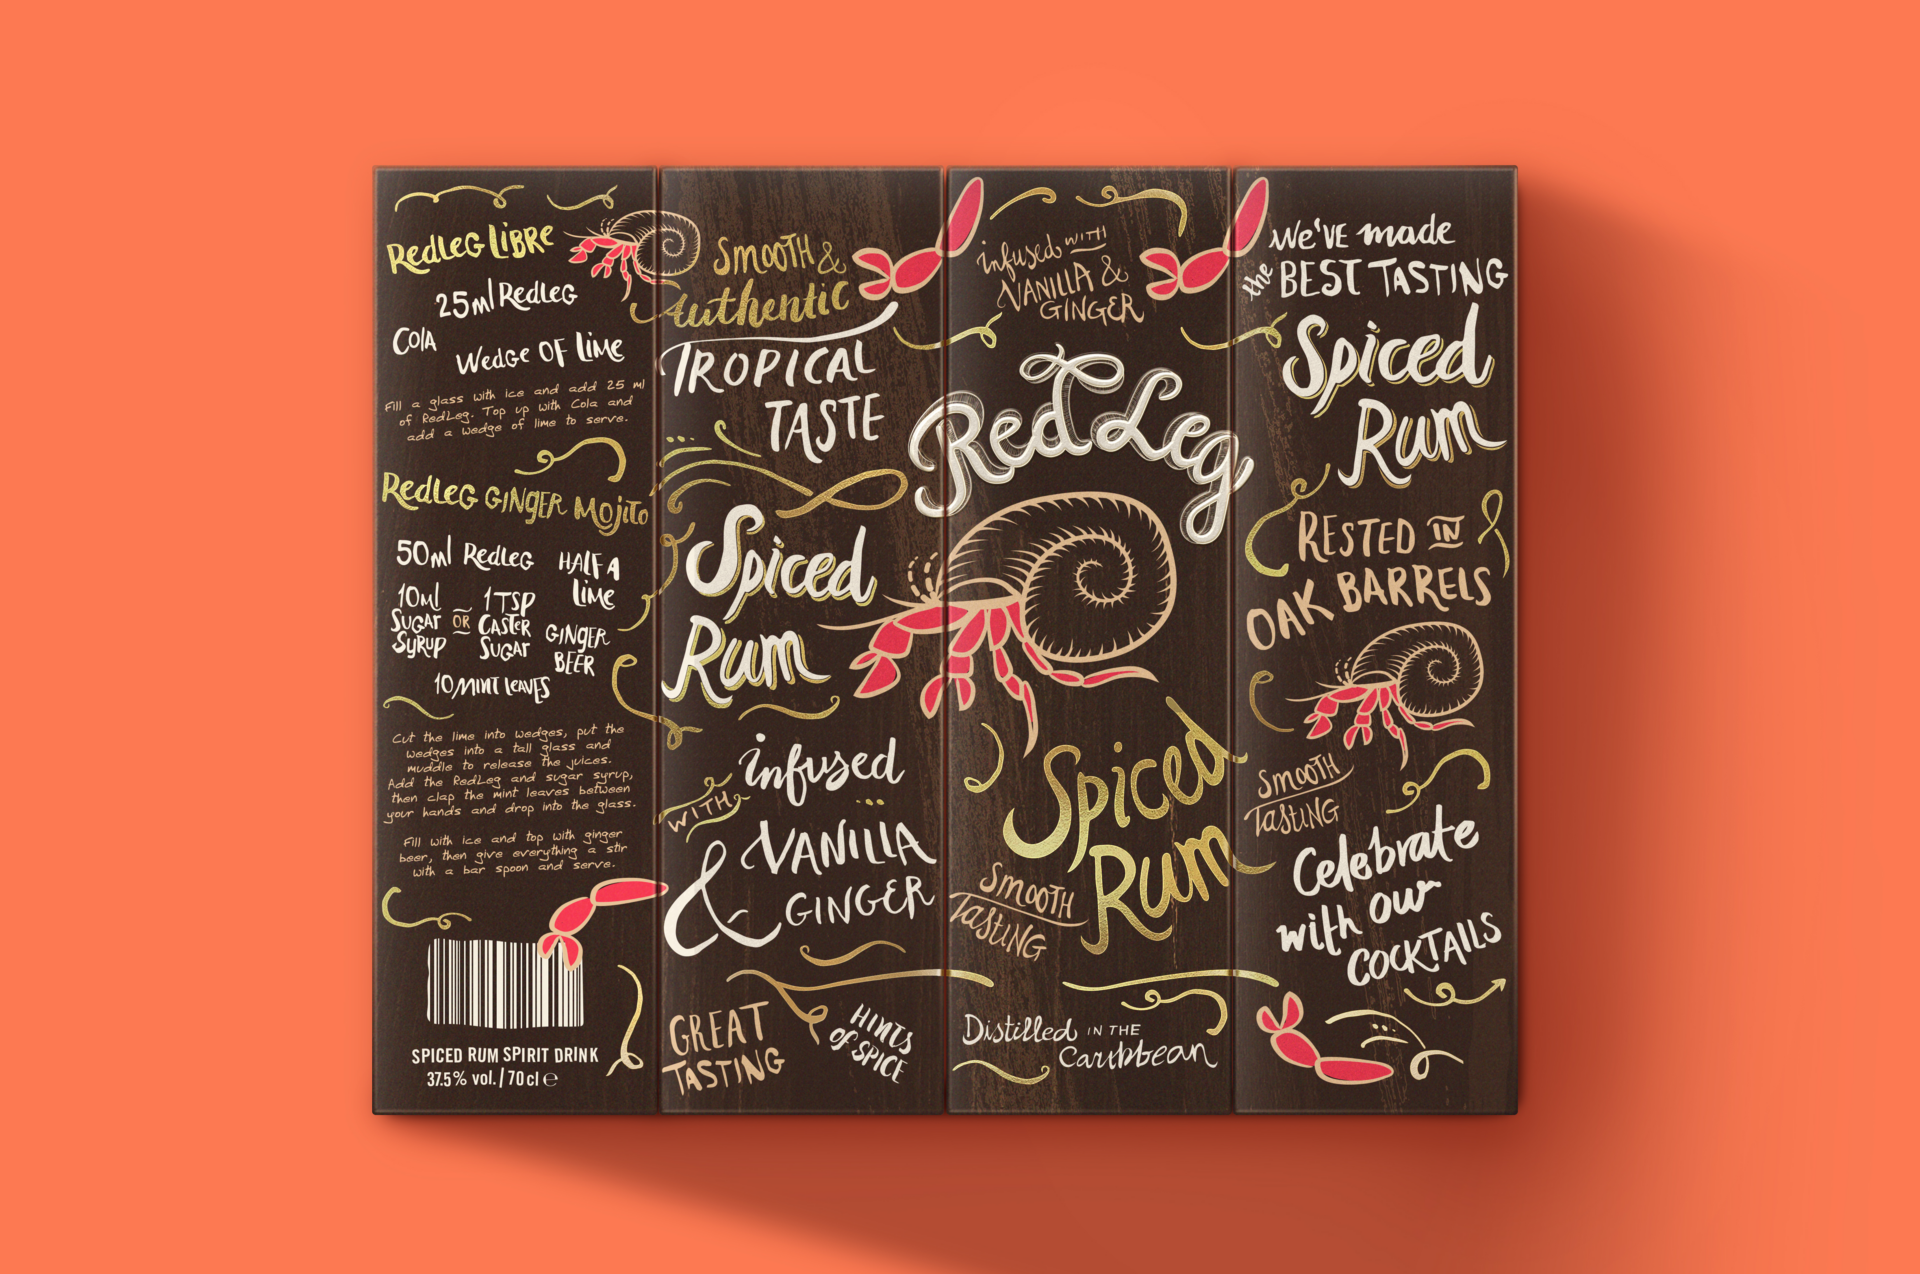 RedLeg LIBRE
25ml RedLeg
Cola
Wedge OF Lime
Fill a glass with ice and add 25 ml
of RedLeg. Top up with Cola and
add a wedge of lime to serve.
RedLeg GINGER Mojito
50ml RedLeg
HALF A
Lime
10ml
SUGAR
SYRUP
OR
1 TSP
CASTER
SUGAR
GINGER
BEER
10 MINT LEAVES
Cut the lime into wedges, put the
wedges into a tall glass and
muddle to release the juices.
Add the RedLeg and sugar syrup,
then clap the mint leaves between
your hands and drop into the glass.
Fill with ice and top with ginger
beer, then give everything a stir
with a bar spoon and serve.
SPICED RUM SPIRIT DRINK
37.5% vol. / 70 cl e
SMOOTH &
Authentic
TROPICAL
TASTE
Spiced
Rum
infused
WITH
VANILLA
& GINGER
GREAT
TASTING
HINTS
of SPICE
infused WITH
VANILLA &
GINGER
RedLeg
Spiced
Rum
SMOOTH
TASTING
Distilled IN THE
Caribbean
We've made
the BEST TASTING
Spiced
Rum
RESTED IN
OAK BARRELS
SMOOTH
TASTING
Celebrate
with our
COCKTAILS